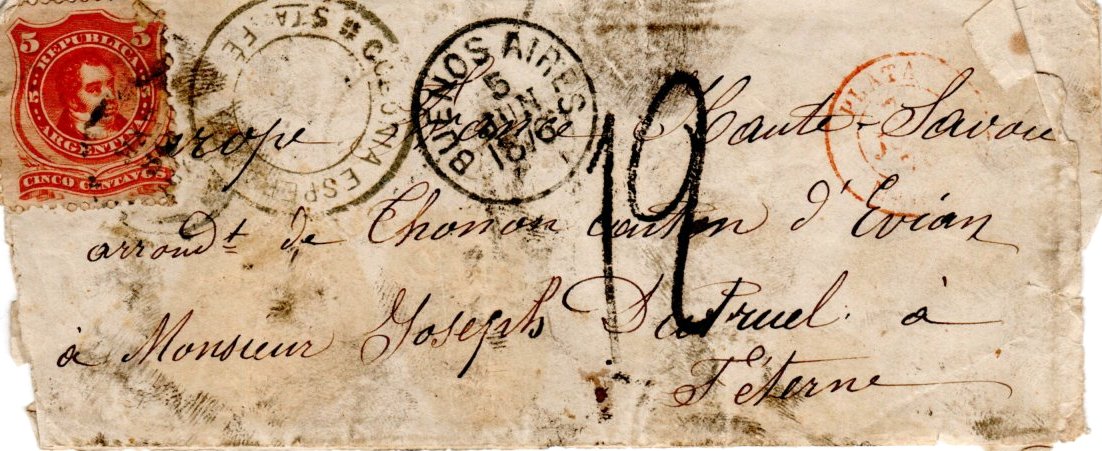 5 REPUBLICA 5
ARGENTINA
CINCO CENTAVOS
COLONIA ESPER
STA FE
BUENOS AIRES
5
JUN
1876
PLATA
12
Europe France Haute-Savoie
arrondt de Thonon canton d'Evian
à Monsieur Joseph Dutruel à
Féterne